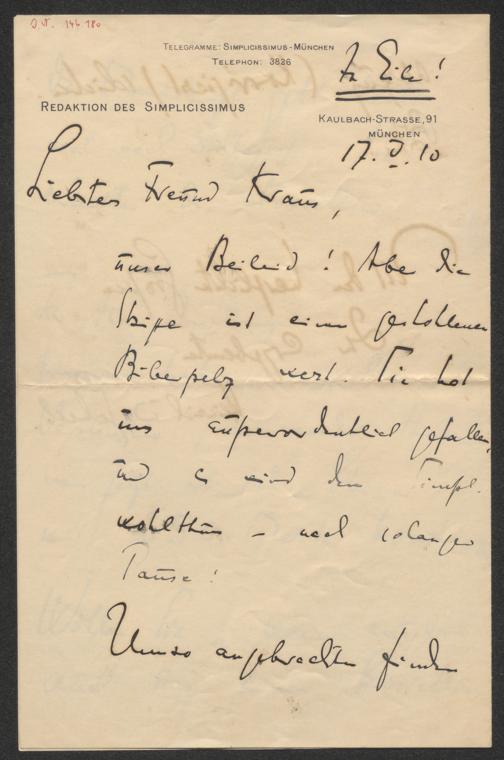 J.N. 146.180
TELEGRAMME: SIMPLICISSIMUS-MÜNCHEN
TELEPHON: 3826
In Eile!
REDAKTION DES SIMPLICISSIMUS
KAULBACH-STRASSE, 91
MÜNCHEN
17. V. 10
Liebster Freund Kraus,
unser Beileid! Aber die
Skizze ist einen gestohlenen
Biberpelz wert. Sie hat
uns außerordentlich gefallen,
und es wird dem Simpl.
wohlthun – nach solanger
Pause!
Umso angebrachter finden